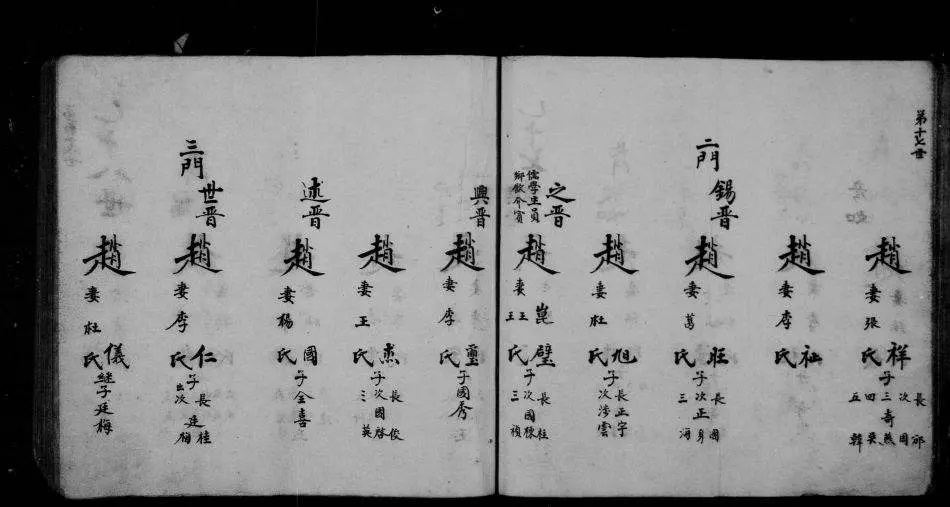 第十七世
趙祥 妻張氏 子 長祁 次國 三奇燕 四吳 五韓
趙祉 妻李氏
二門 錫晋 趙旺 妻葛氏 子 長國 次正身 三海
趙旭 妻杜氏 子 長正宇 次涉雲
之晋 儒學生員 鄉飲介賓 趙崑璧 妻王王氏 子 長柱 次國棟 三禎
興晋 趙璽 妻李氏 子國秀
趙 妻王氏 子 長俊 次國啓 三英
述晋 趙國 妻楊氏 子金喜
三門 世晋 趙仁 妻李氏 子 長廷桂 次廷梅 出
趙儀 妻杜氏 継子廷梅